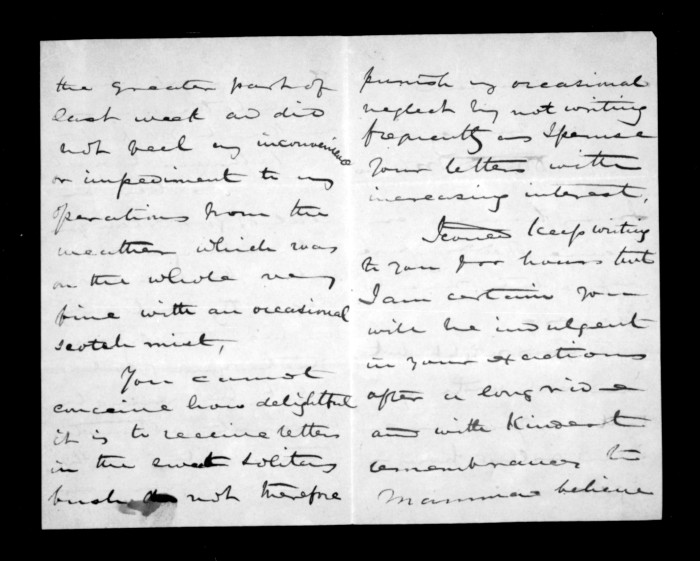 the greater part of
last week and did
not feel any inconvenience
or impediment to my
operations from the
weather which was
on the whole very
fine with an occasional
scotch mist,
You cannot
conceive how delightful
it is to receive letters
in the solitary
bush do not therefore
punish my occasional
neglect by not writing
frequently as I peruse
your letters with
increasing interest,
I could keep writing
to you for hours but
I am certain you
will be indulgent
in your exactions
after a long ride
and with Kindest
remembrances to
Mamma believe